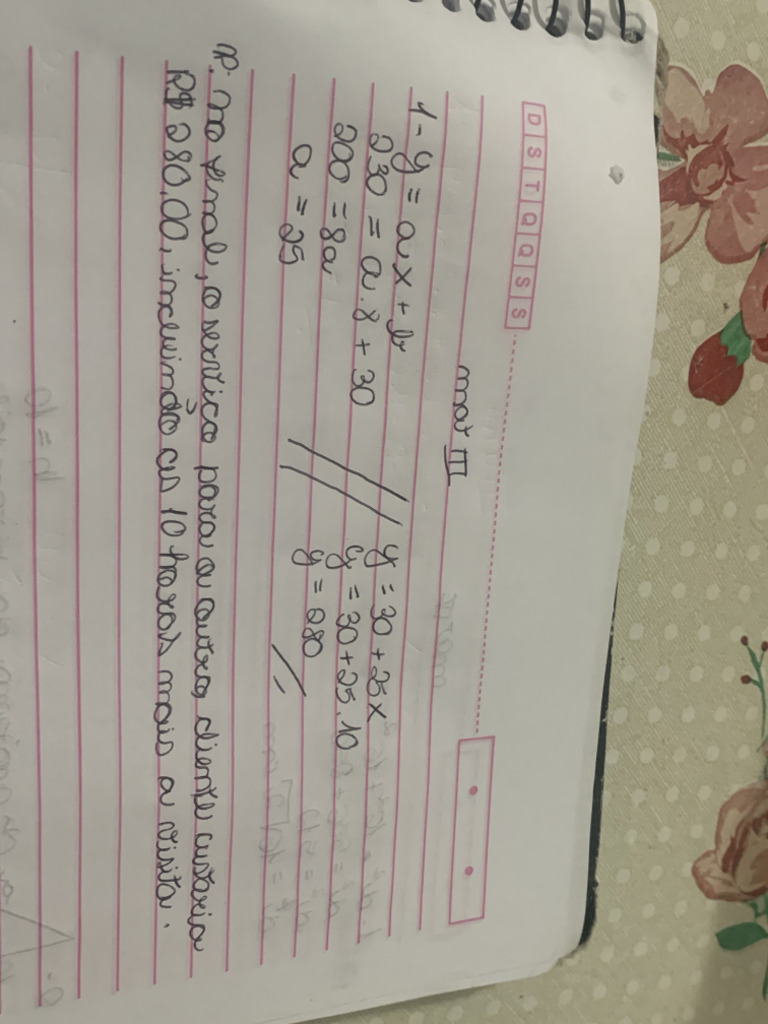 D S T Q Q S S
mat III
1- y = ax + b
230 = a.8 + 30
200 = 8a
a = 25
y = 30 + 25x
y = 30 + 25.10
y = 280
R. no final, o serviço para a outra cliente custaria
R$ 280,00, incluindo as 10 horas mais a visita.